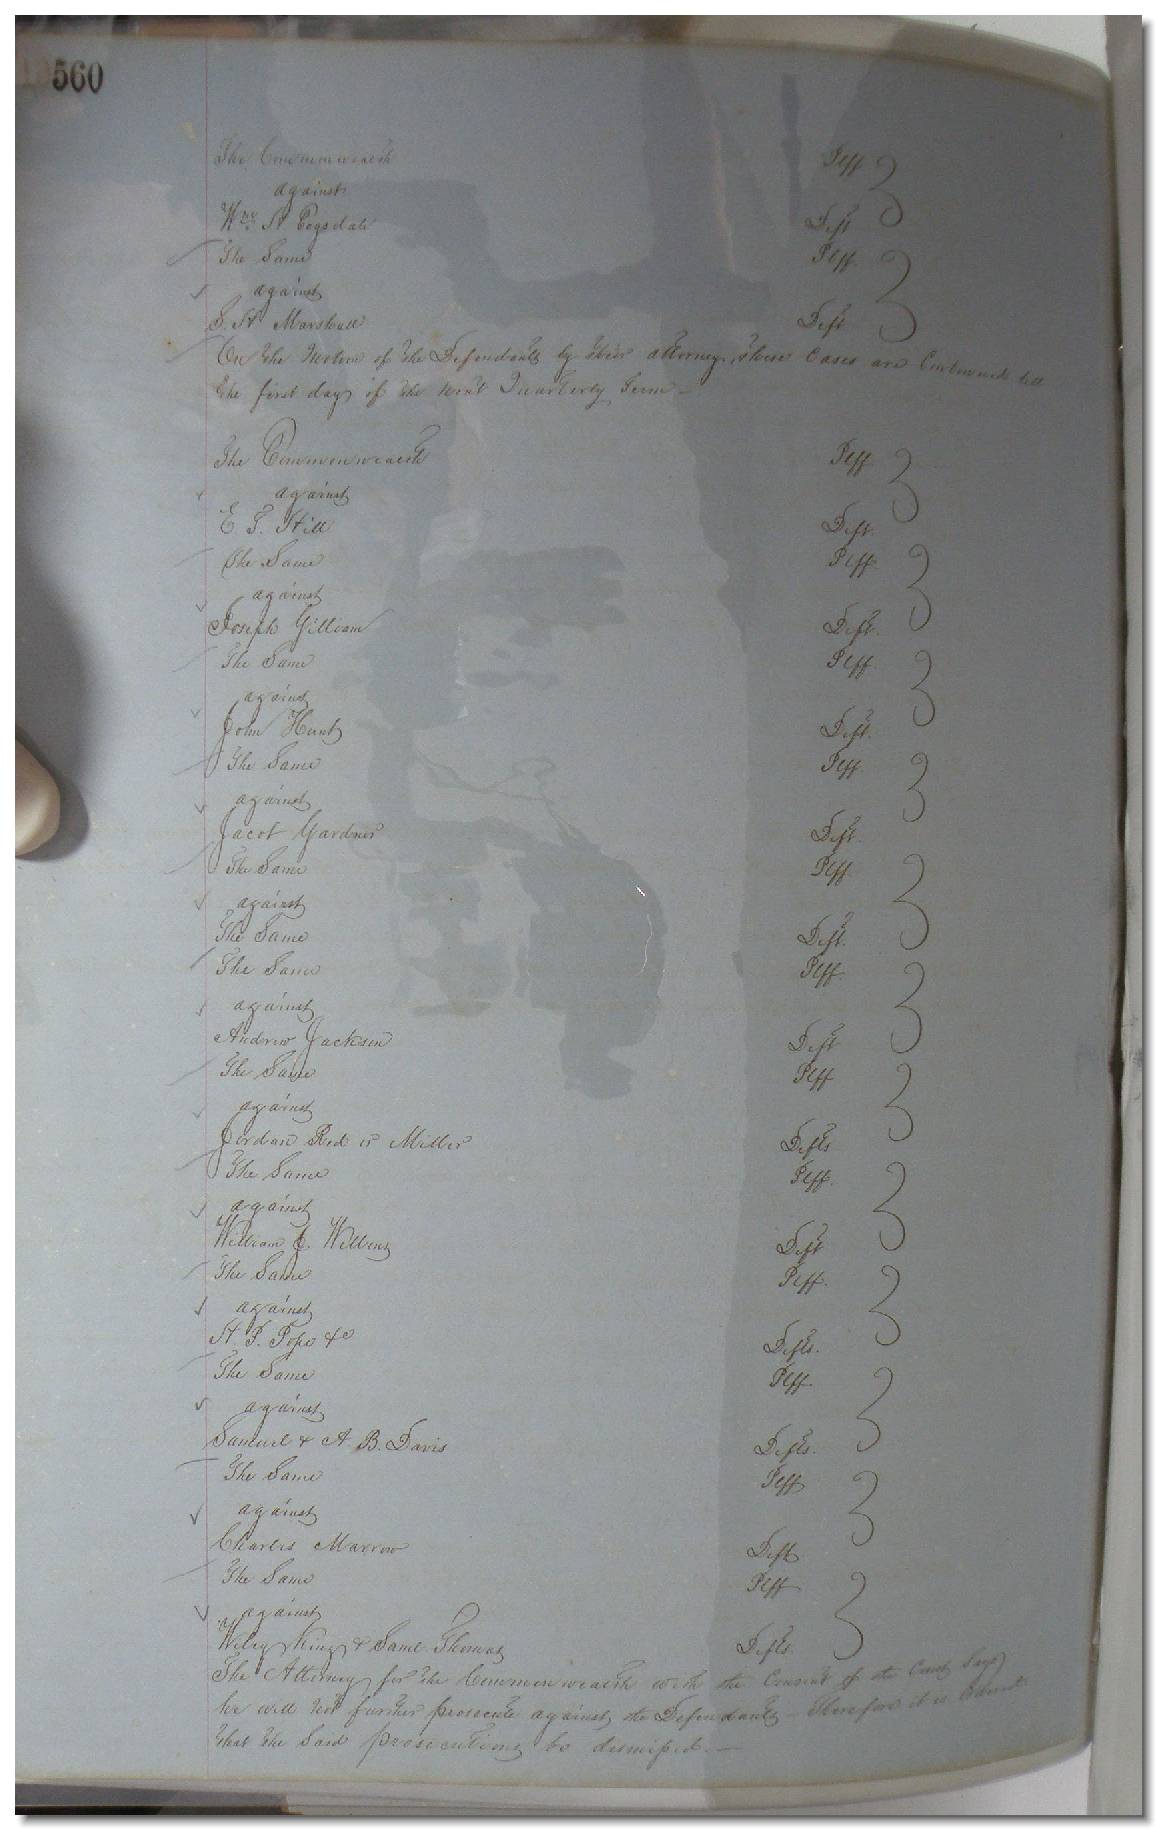 560
The Commonwealth Plff
against
Wm H Pogsdale Deft
The Same Plff
against
S. H. Marshall Deft
On the Motion of the Defendants by their attorney, these Cases are Continued till
the first day of the next Quarterly Term —
The Commonwealth Plff
against
E. T. Hill Deft.
The Same Plff
against
Joseph Gilliam Deft.
The Same Plff
against
John Hunt Deft.
The Same Plff.
against
Jacob Gardner Deft.
The Same Plff
against
The Same Deft.
The Same Plff.
against
Andrew Jackson Deft
The Same Plff
against
Jordan Red or Miller Defts
The Same Plff.
against
William J. Wilkins Deft
The Same Plff.
against
H. P. Pope &c Defts.
The Same Plff.
against
Samuel & A. B. Davis Defts.
The Same Plff
against
Charles Marrow Deft
The Same Plff
against
Wiley King & Saml. Thomas Defts.
The Attorney for the Commonwealth with the Consent of the Court Says
he will not further prosecute against the Defendants — Therefore it is Ordered
that the Said prosecutions be dismissed. —